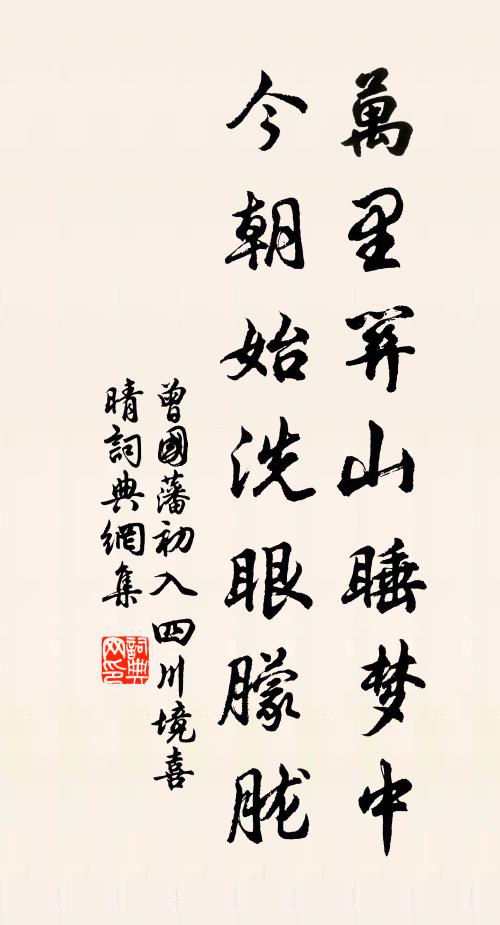 萬里関山睡梦中
今朝始洗眼朦胧
曾國藩初入四川境喜
晴詞典網集
詞典
网印